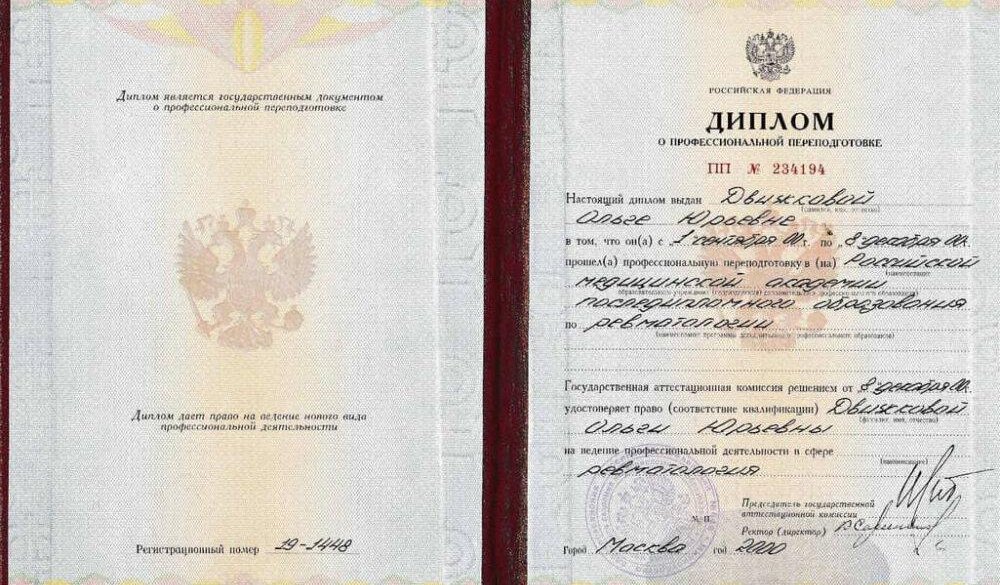 Диплом является государственным документом
о профессиональной переподготовке
Диплом дает право на ведение нового вида
профессиональной деятельности
Регистрационный номер 19-1448
РОССИЙСКАЯ ФЕДЕРАЦИЯ
ДИПЛОМ
О ПРОФЕССИОНАЛЬНОЙ ПЕРЕПОДГОТОВКЕ
ПП № 234194
Настоящий диплом выдан Движковой
(фамилия, имя, отчество)
Ольге Юрьевне
в том, что он(а) с „1 сентября 00 г. по „8 декабря 00г.
прошел(а) профессиональную переподготовку в (на) Российской
(наименование
медицинской академии
последипломного образования
по ревматологии
(наименование программы дополнительного профессионального образования)
Государственная аттестационная комиссия решением от 8 декабря 00г.
удостоверяет право (соответствие квалификации) Движковой
(фамилия, имя, отчество)
Ольги Юрьевны
на ведение профессиональной деятельности в сфере
(наименование)
ревматология
Председатель государственной
аттестационной комиссии
М. П.
Ректор (директор)
Город Москва год 2000